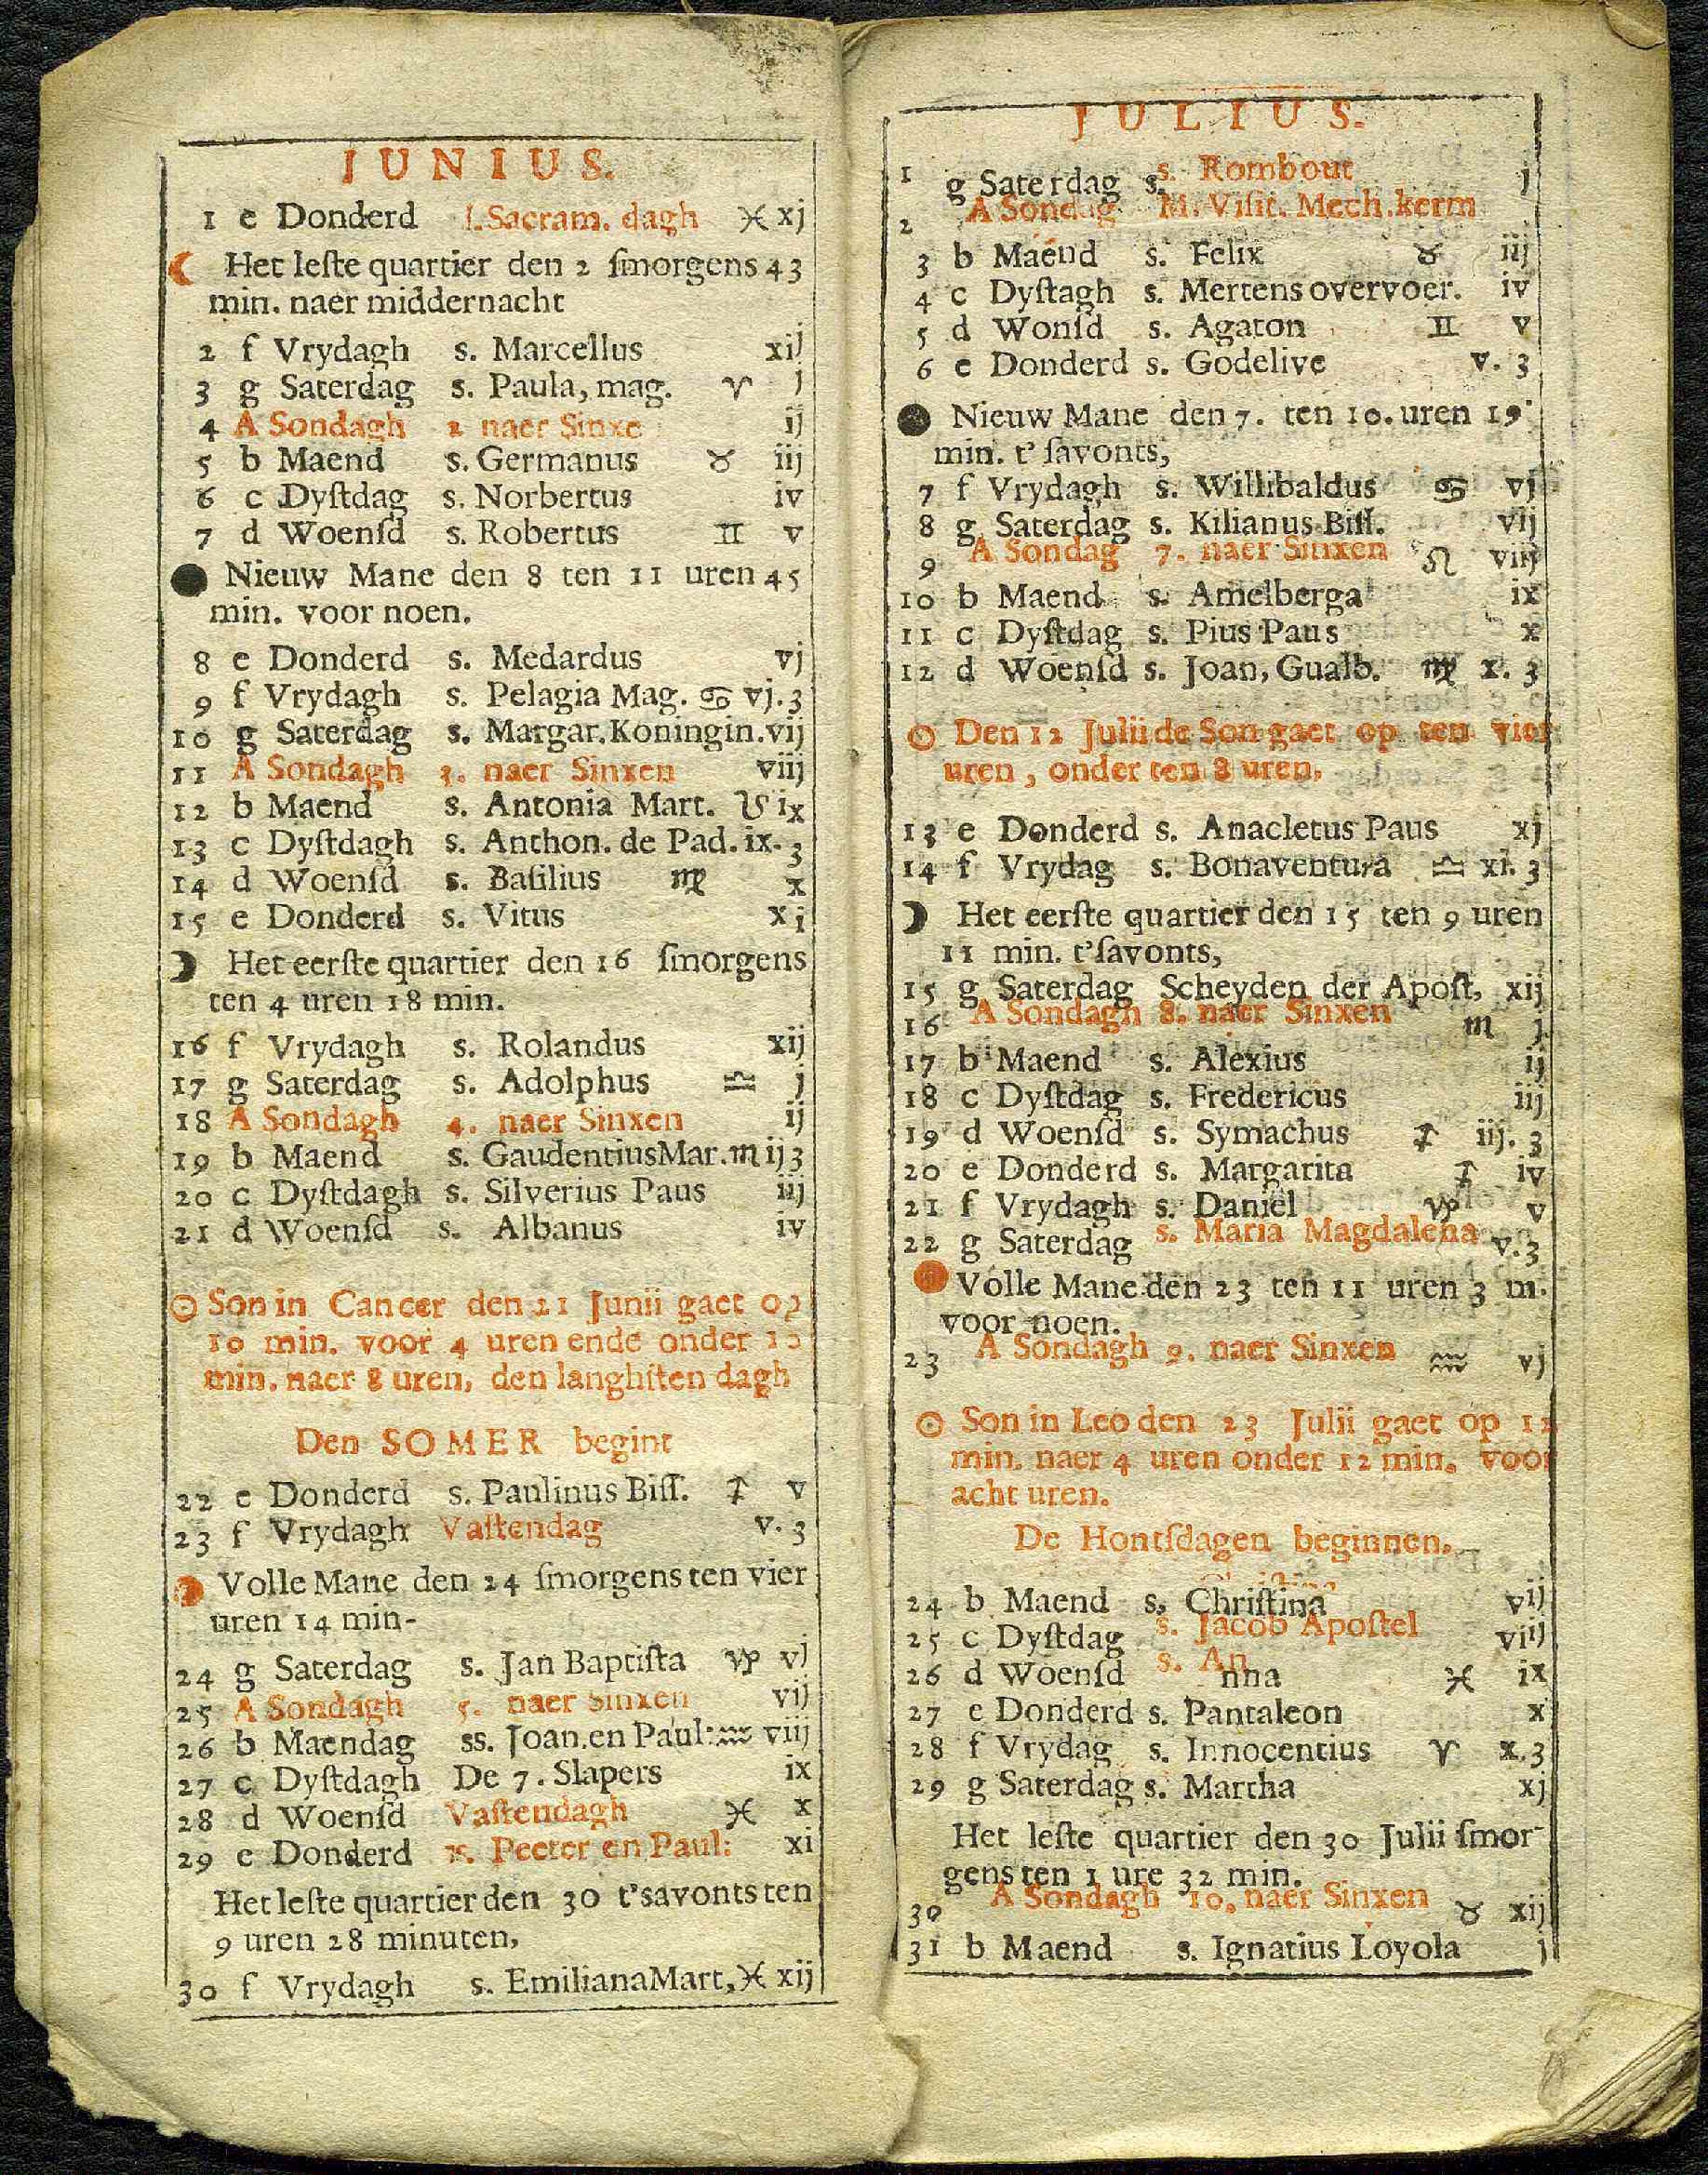 JUNIUS.
1 e Donderd f. Sacram. dagh ♓ xj
☾ Het leſte quartier den 2 ſmorgens 43
min. naer middernacht
2 f Vrydagh s. Marcellus xij
3 g Saterdag s. Paula, mag. ♈ j
4 A Sondagh 2 naer Sinxe ij
5 b Maend s. Germanus ♉ iij
6 c Dyſtdag s. Norbertus iv
7 d Woenſd s. Robertus ♊ v
● Nieuw Mane den 8 ten 11 uren 45
min. voor noen.
8 e Donderd s. Medardus vj
9 f Vrydagh s. Pelagia Mag. ♋ vj.3
10 g Saterdag s. Margar. Koningin. vij
11 A Sondagh 3. naer Sinxen viij
12 b Maend s. Antonia Mart. ♌ ix
13 c Dyſtdagh s. Anthon. de Pad. ix. 3
14 d Woenſd s. Baſilius ♍ x
15 e Donderd s. Vitus xj
☽ Het eerſte quartier den 16 ſmorgens
ten 4 uren 18 min.
16 f Vrydagh s. Rolandus xij
17 g Saterdag s. Adolphus ♎ j
18 A Sondagh 4. naer Sinxen ij
19 b Maend s. Gaudentius Mar. ♏ ij 3
20 c Dyſtdagh s. Silverius Paus iij
21 d Woenſd s. Albanus iv
☉ Son in Cancer den 21 Junii gaet op
10 min. voor 4 uren ende onder 10
min. naer 8 uren, den langhſten dagh
Den SOMER begint
22 e Donderd s. Paulinus Biſſ. ♐ v
23 f Vrydagh Vaſtendag v. 3
Volle Mane den 24 ſmorgens ten vier
uren 14 min-
24 g Saterdag s. Jan Baptiſta ♑ vj
25 A Sondagh 5. naer Sinxen vij
26 b Maendag ss. Joan. en Paul: ♒ viij
27 c Dyſtdagh De 7. Slapers ix
28 d Woenſd Vaſtendagh ♓ x
29 e Donderd Peeter en Paul: xi
Het leſte quartier den 30 t'savonts ten
9 uren 28 minuten,
30 f Vrydagh s. Emiliana Mart, ♓ xij
JULIUS.
1 g Saterdag s. s. Rombout j
2 A Sondag M. Viſit. Mech. kerm
3 b Maend s. Felix ♉ iij
4 c Dyſtagh s. Mertens overvoer. iv
5 d Wonſd s. Agaton ♊ v
6 e Donderd s. Godelive v. 3
● Nieuw Mane den 7. ten 10. uren 19
min. t' ſavonts,
7 f Vrydagh s. Willibaldus ♋ vj
8 g Saterdag s. Kilianus Biſſ. vij
9 A Sondag 7. naer Sinxen ♌ viij
10 b Maend s. Amelberga ix
11 c Dyſtdag s. Pius Paus x
12 d Woenſd s. Joan, Gualb. ♍ x. 3
☉ Den 12 Julii de Son gaet op ten vier
uren, onder ten 8 uren.
13 e Donderd s. Anacletus Paus xj
14 f Vrydag s. Bonaventura ♎ xi. 3
☽ Het eerſte quartier den 15 ten 9 uren
11 min. t'ſavonts,
15 g Saterdag Scheyden der Apoſt, xij
16 A Sondagh 8. naer Sinxen ♏ j
17 b Maend s. Alexius ij
18 c Dyſtdag s. Fredericus iij
19 d Woenſd s. Symachus ♐ iij. 3
20 e Donderd s. Margarita ♐ iv
21 f Vrydagh s. Daniel ♑ v
22 g Saterdag s. Maria Magdalena v. 3
Volle Mane den 23 ten 11 uren 3 m.
voor noen.
23 A Sondagh 9. naer Sinxen ♒ vj
☉ Son in Leo den 23 Julii gaet op 12
min. naer 4 uren onder 12 min. voor
acht uren.
De Hontſdagen beginnen.
24 b Maend s. Chriſtina vij
25 c Dyſtdag s. Jacob Apoſtel viij
26 d Woenſd s. Anna ♓ ix
27 e Donderd s. Pantaleon x
28 f Vrydag s. Innocentius ♈ x. 3
29 g Saterdag s. Martha xj
Het leſte quartier den 30 Julii ſmor-
gens ten 1 ure 32 min.
30 A Sondagh 10. naer Sinxen ♉ xij
31 b Maend s. Ignatius Loyola j